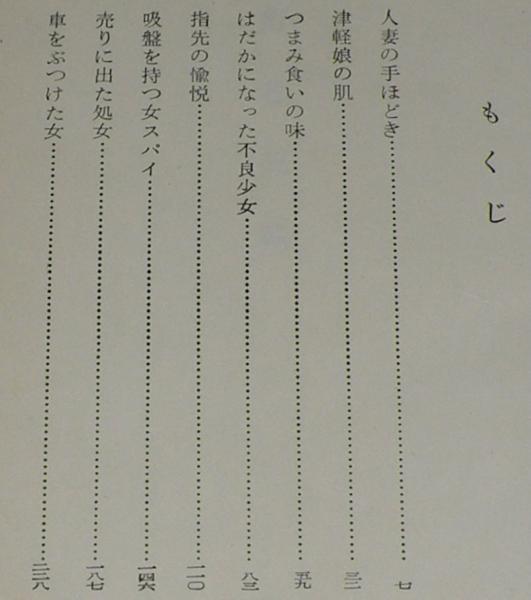 もくじ
人妻の手ほどき……七
津軽娘の肌……三二
つまみ食いの味……五九
はだかになった不良少女……八三
指先の愉悦……一一〇
吸盤を持つ女スパイ……一四六
売りに出た処女……一八七
車をぶつけた女……二二八